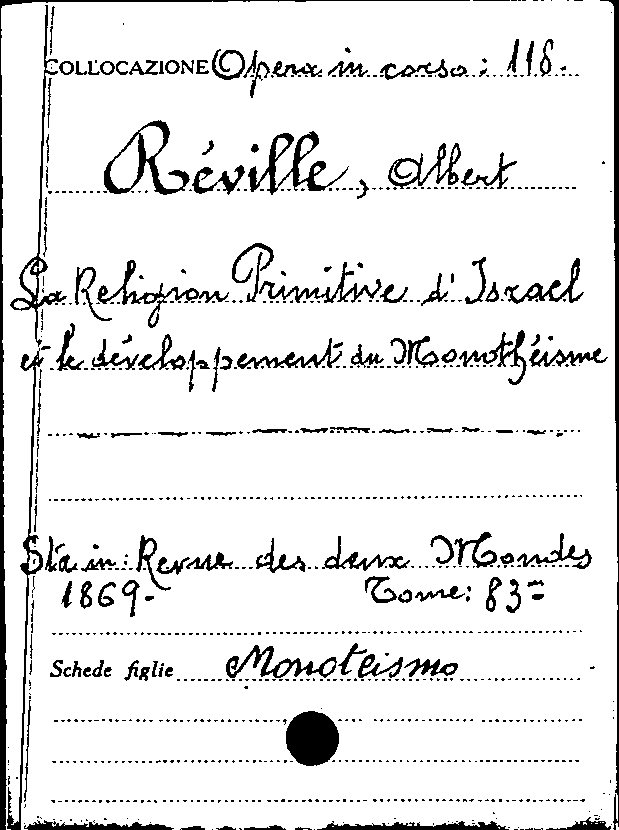 COLLOCAZIONE Opera in corso: 118.
Réville, Albert
La Religion Primitive d'Israel
et le développement du Monothéisme
Sta in: Revue des deux Mondes
1869- Tome: 83=
Schede figlie Monoteismo